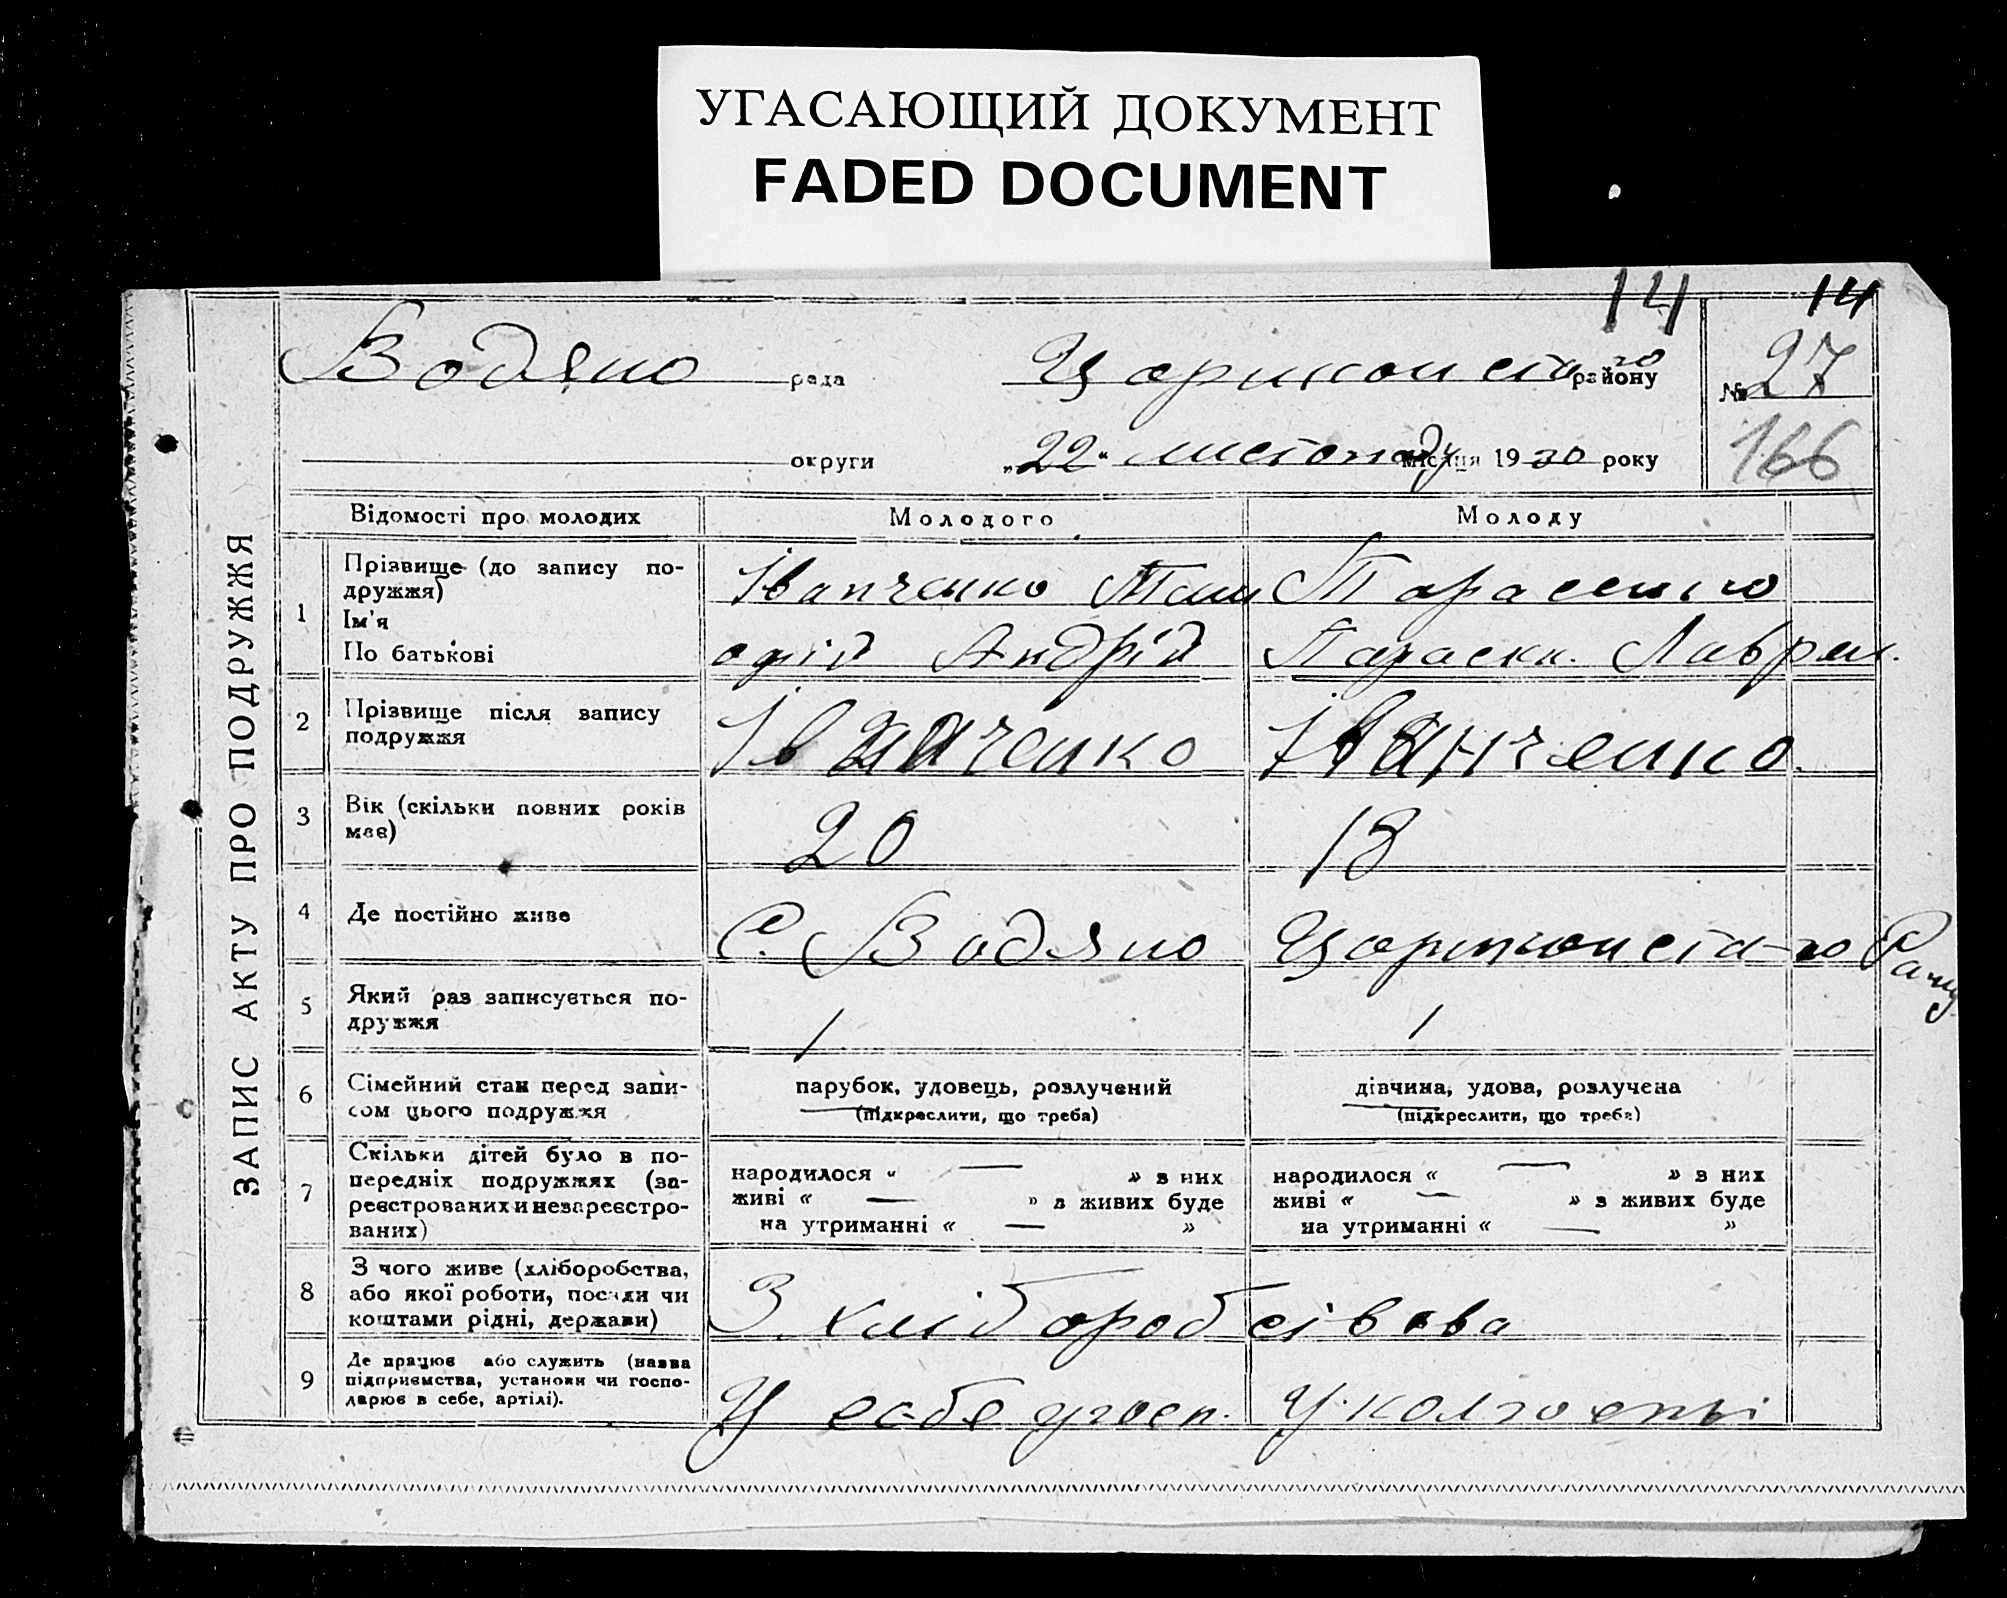 УГАСАЮЩИЙ ДОКУМЕНТ
FADED DOCUMENT
14 14
Водяно рада Царичонсько району № 27
округи „22“ листопаду місяця 1930 року 166
ЗАПИС АКТУ ПРО ПОДРУЖЖЯ
Відомості про молодих Молодого Молоду
1 Прізвище (до запису подружжя)
Ім'я
По батькові
Іванченко Тим Тарасенко
офій Андрій Параск. Лаврен.
2 Прізвище після запису подружжя Іванченко Іванченко
3 Вік (скільки повних років має) 20 18
4 Де постійно живе С. Водяно
5 Який раз записується подружжя 1 1
6 Сімейний стан перед записом цього подружжя
парубок, удовець, розлучений дівчина, удова, розлучена
(підкреслити, що треба) (підкреслити, що треба)
7 Скільки дітей було в попередніх подружжях (зареєстрованих и незареєстрованих)
народилося “ — » з них народилося “ — » з них
живі “ — » з живих буде живі “ — » з живих буде
на утриманні “ — » на утриманні “ — »
8 З чого живе (хліборобства, або якої роботи, посади чи коштами рідні, держави)
З хліборобсівова
9 Де працює або служить (назва підприємства, установи чи господарює в себе, артілі).
У себе угосп. У колгоспі